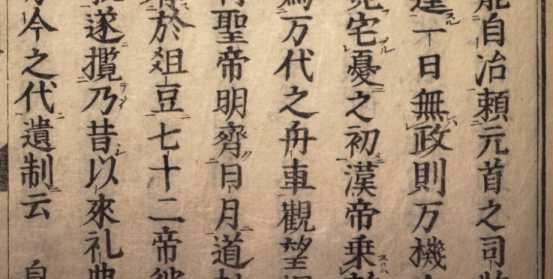 能自冶頼元首之司
一日無政則万機
宅憂之初漢帝乗
為万代之舟車觀望
聖帝明齊日月道
於俎豆七十二帝
遂攬乃昔以來礼典
今之代遺制云